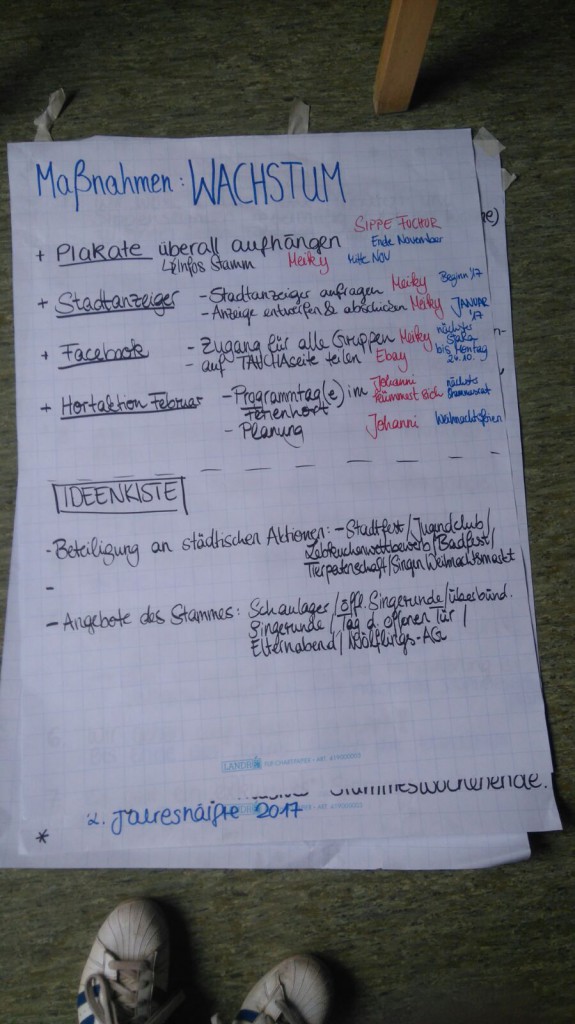 Maßnahmen: WACHSTUM
SIPPE FUCHUR
+ Plakate überall aufhängen Ende November
Infos Stamm Meiky Mitte NOV
+ Stadtanzeiger - Stadtanzeiger anfragen Meiky Beginn '17
- Anzeige entwerfen & abschicken Meiky JANUAR '17
+ Facebook - Zugang für alle Gruppen Meiky nächster
- auf TAUCHAseite teilen Ebay bis Montag 24.10.
+ Hortaktion Februar - Programmtag(e) im Johanni kümmert sich nächster Stammesrat
Ferienhort
- Planung Johanni Weihnachtsferien
IDEENKISTE
- Beteiligung an städtischen Aktionen: - Stadtfest / Jugendclub /
Lebkuchenwettbewerb / Badfest /
Tierpatenschaft / Singen Weihnachtsmarkt
-
- Angebote des Stammes: Schaulager / öff. Singerunde / überbünd.
Singerunde / Tag d. offenen Tür /
Elternabend / Wölflings-AG
LANDRÉ
Stammeswochenende.
2. Jahreshälfte 2017
*